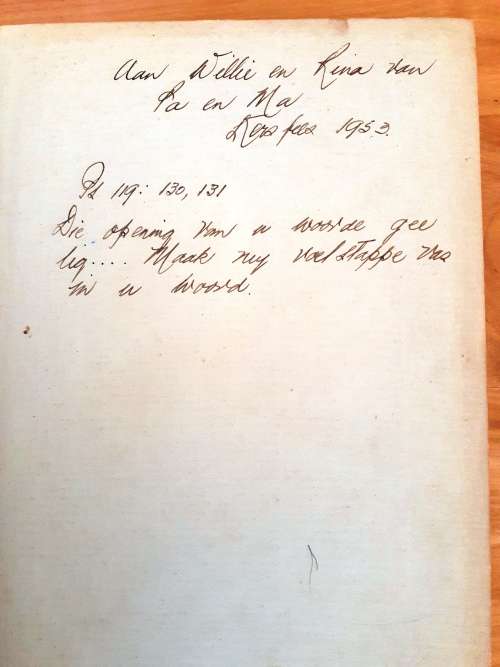 Aan Willie en Rina van
Pa en Ma
Kersfees 1953.
Ps 119: 130, 131
Die opening van u woorde gee
lig.... Maak my voetstappe vas
in u woord.